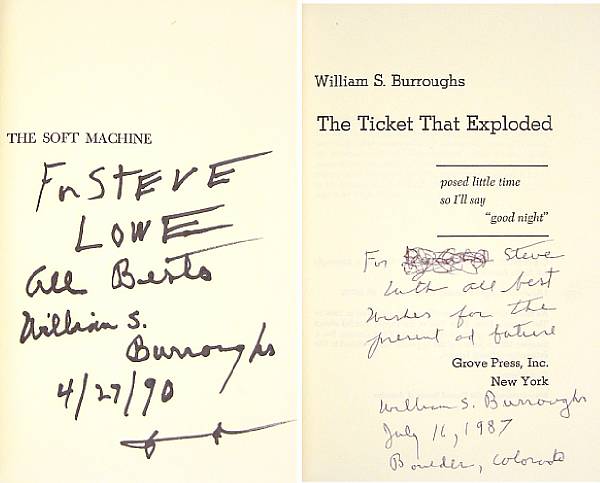 THE SOFT MACHINE
For STEVE
LOWE
All Bests
William S.
Burroughs
4/27/90
William S. Burroughs
The Ticket That Exploded
posed little time
so I'll say
"good night"
For Steve
with all best
wishes for the
present ad future
Grove Press, Inc.
New York
William S. Burroughs
July 16, 1987
Boulder, Colorado